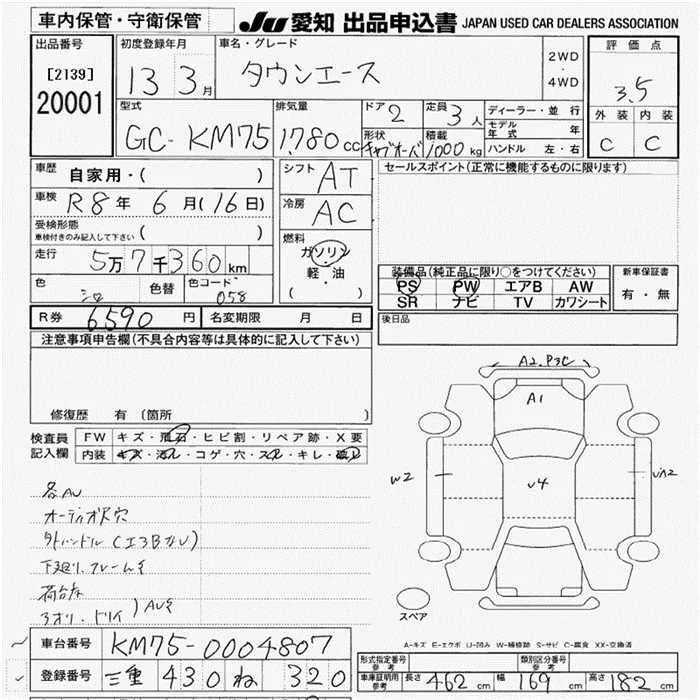 車内保管・守衛保管
JU 愛知 出品申込書 JAPAN USED CAR DEALERS ASSOCIATION
出品番号
[2139]
20001
初度登録年月
13 3月
車名・グレード
タウンエース
2WD
・
4WD
評価点
3.5
外装 内装
C C
型式
GC-KM75
排気量
1,780 cc
ドア
2
定員
3人
形状
積載
1000 kg
ディーラー・並行
モデル年式 年
ハンドル 左・右
車歴
自家用・( )
車検
R8年 6月(16日)
受検形態
車検付きのみ記入して下さい ( )
走行
5万7千360km
色
シロ
色替
色コード
058
シフト
AT
冷房
AC
燃料
ガソリン
・
軽・油
( )
セールスポイント(正常に機能するものに限ります)
装備品(純正品に限り○をつけてください)
PS PW エアB AW
SR ナビ TV カワシート
新車保証書
有・無
後日品
R券 6590円 名変期限 月 日
注意事項申告欄(不具合内容等は具体的に記入して下さい)
修復歴 有(箇所
検査員
記入欄
FW キズ・飛石・ヒビ割・リペア跡・X要
内装 キズ・汚レ・コゲ・穴・スレ・キレ・破レ
各AU
オーディオ沢穴
外ハンドル(エ3BカU)
3オリ・ドリイ)AUを
A2.P3C
A1
W2
U4
スペア
A-キズ E-エクボ U-凹み W-補修跡 S-サビ C-腐食 XX-交換済
車台番号 KM75-0004807
登録番号 三重 430 ね 320
形式指定番号
参考
類別区分番号
参考
車庫証明用
参考
長さ 462 cm 幅 169 cm 高さ 182 cm